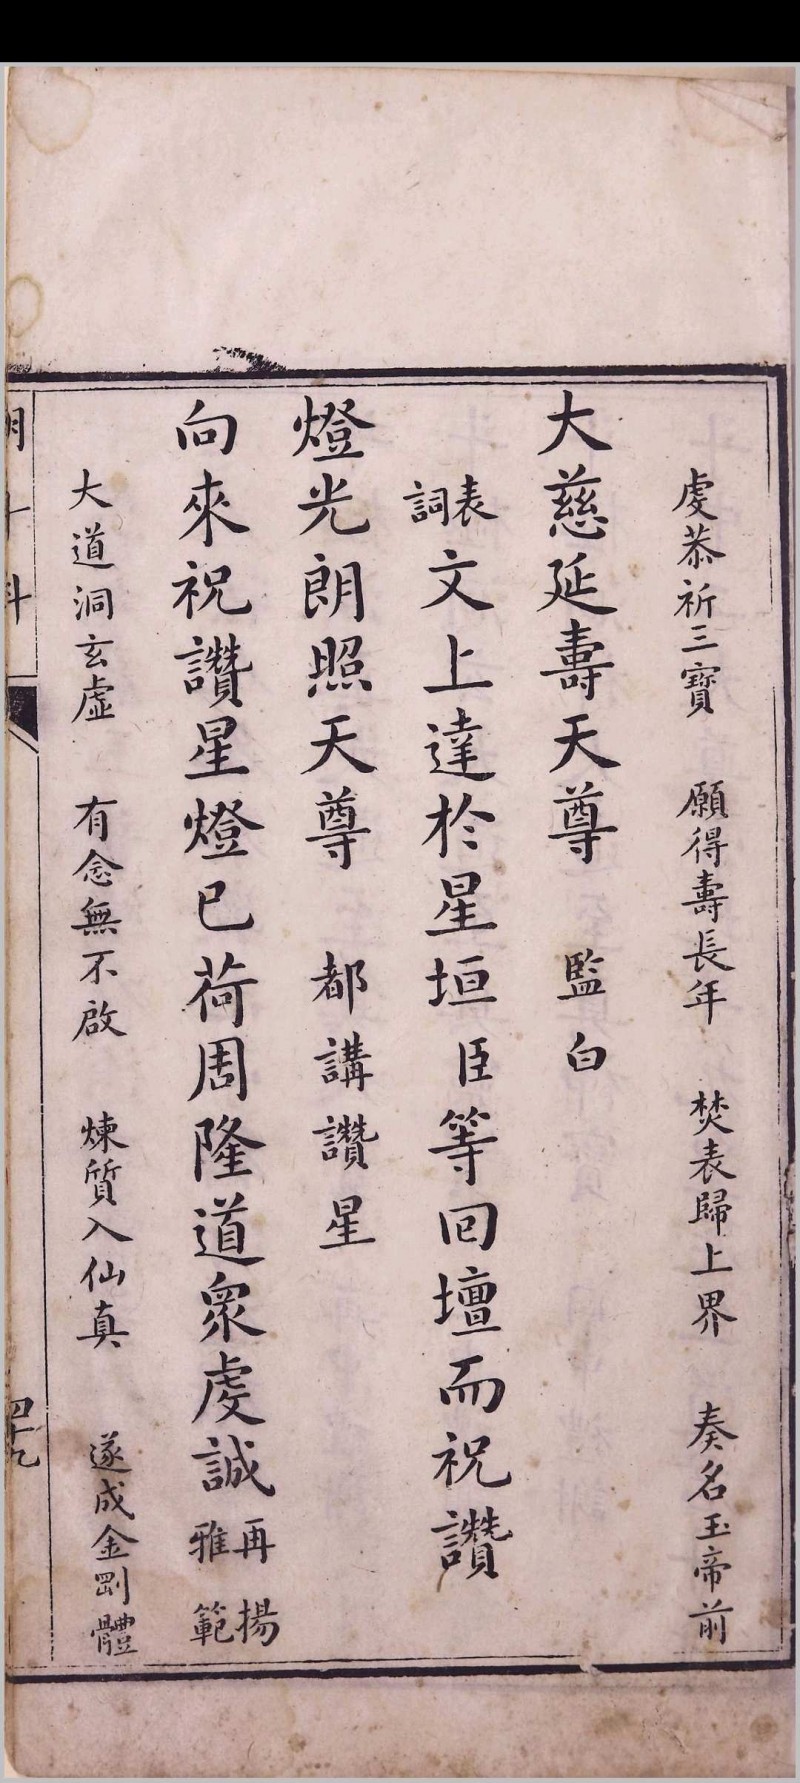 虔恭祈三寶 願得壽長年 焚表歸上界 奏名玉帝前
大慈延壽天尊 監白
表詞文上達於星垣臣等回壇而祝讚
燈光朗照天尊 都講讚星
向來祝讚星燈已荷周隆道眾虔誠再揚雅範
大道洞玄虛 有念無不啟 煉質入仙真 遂成金剛體
斗科
四十九